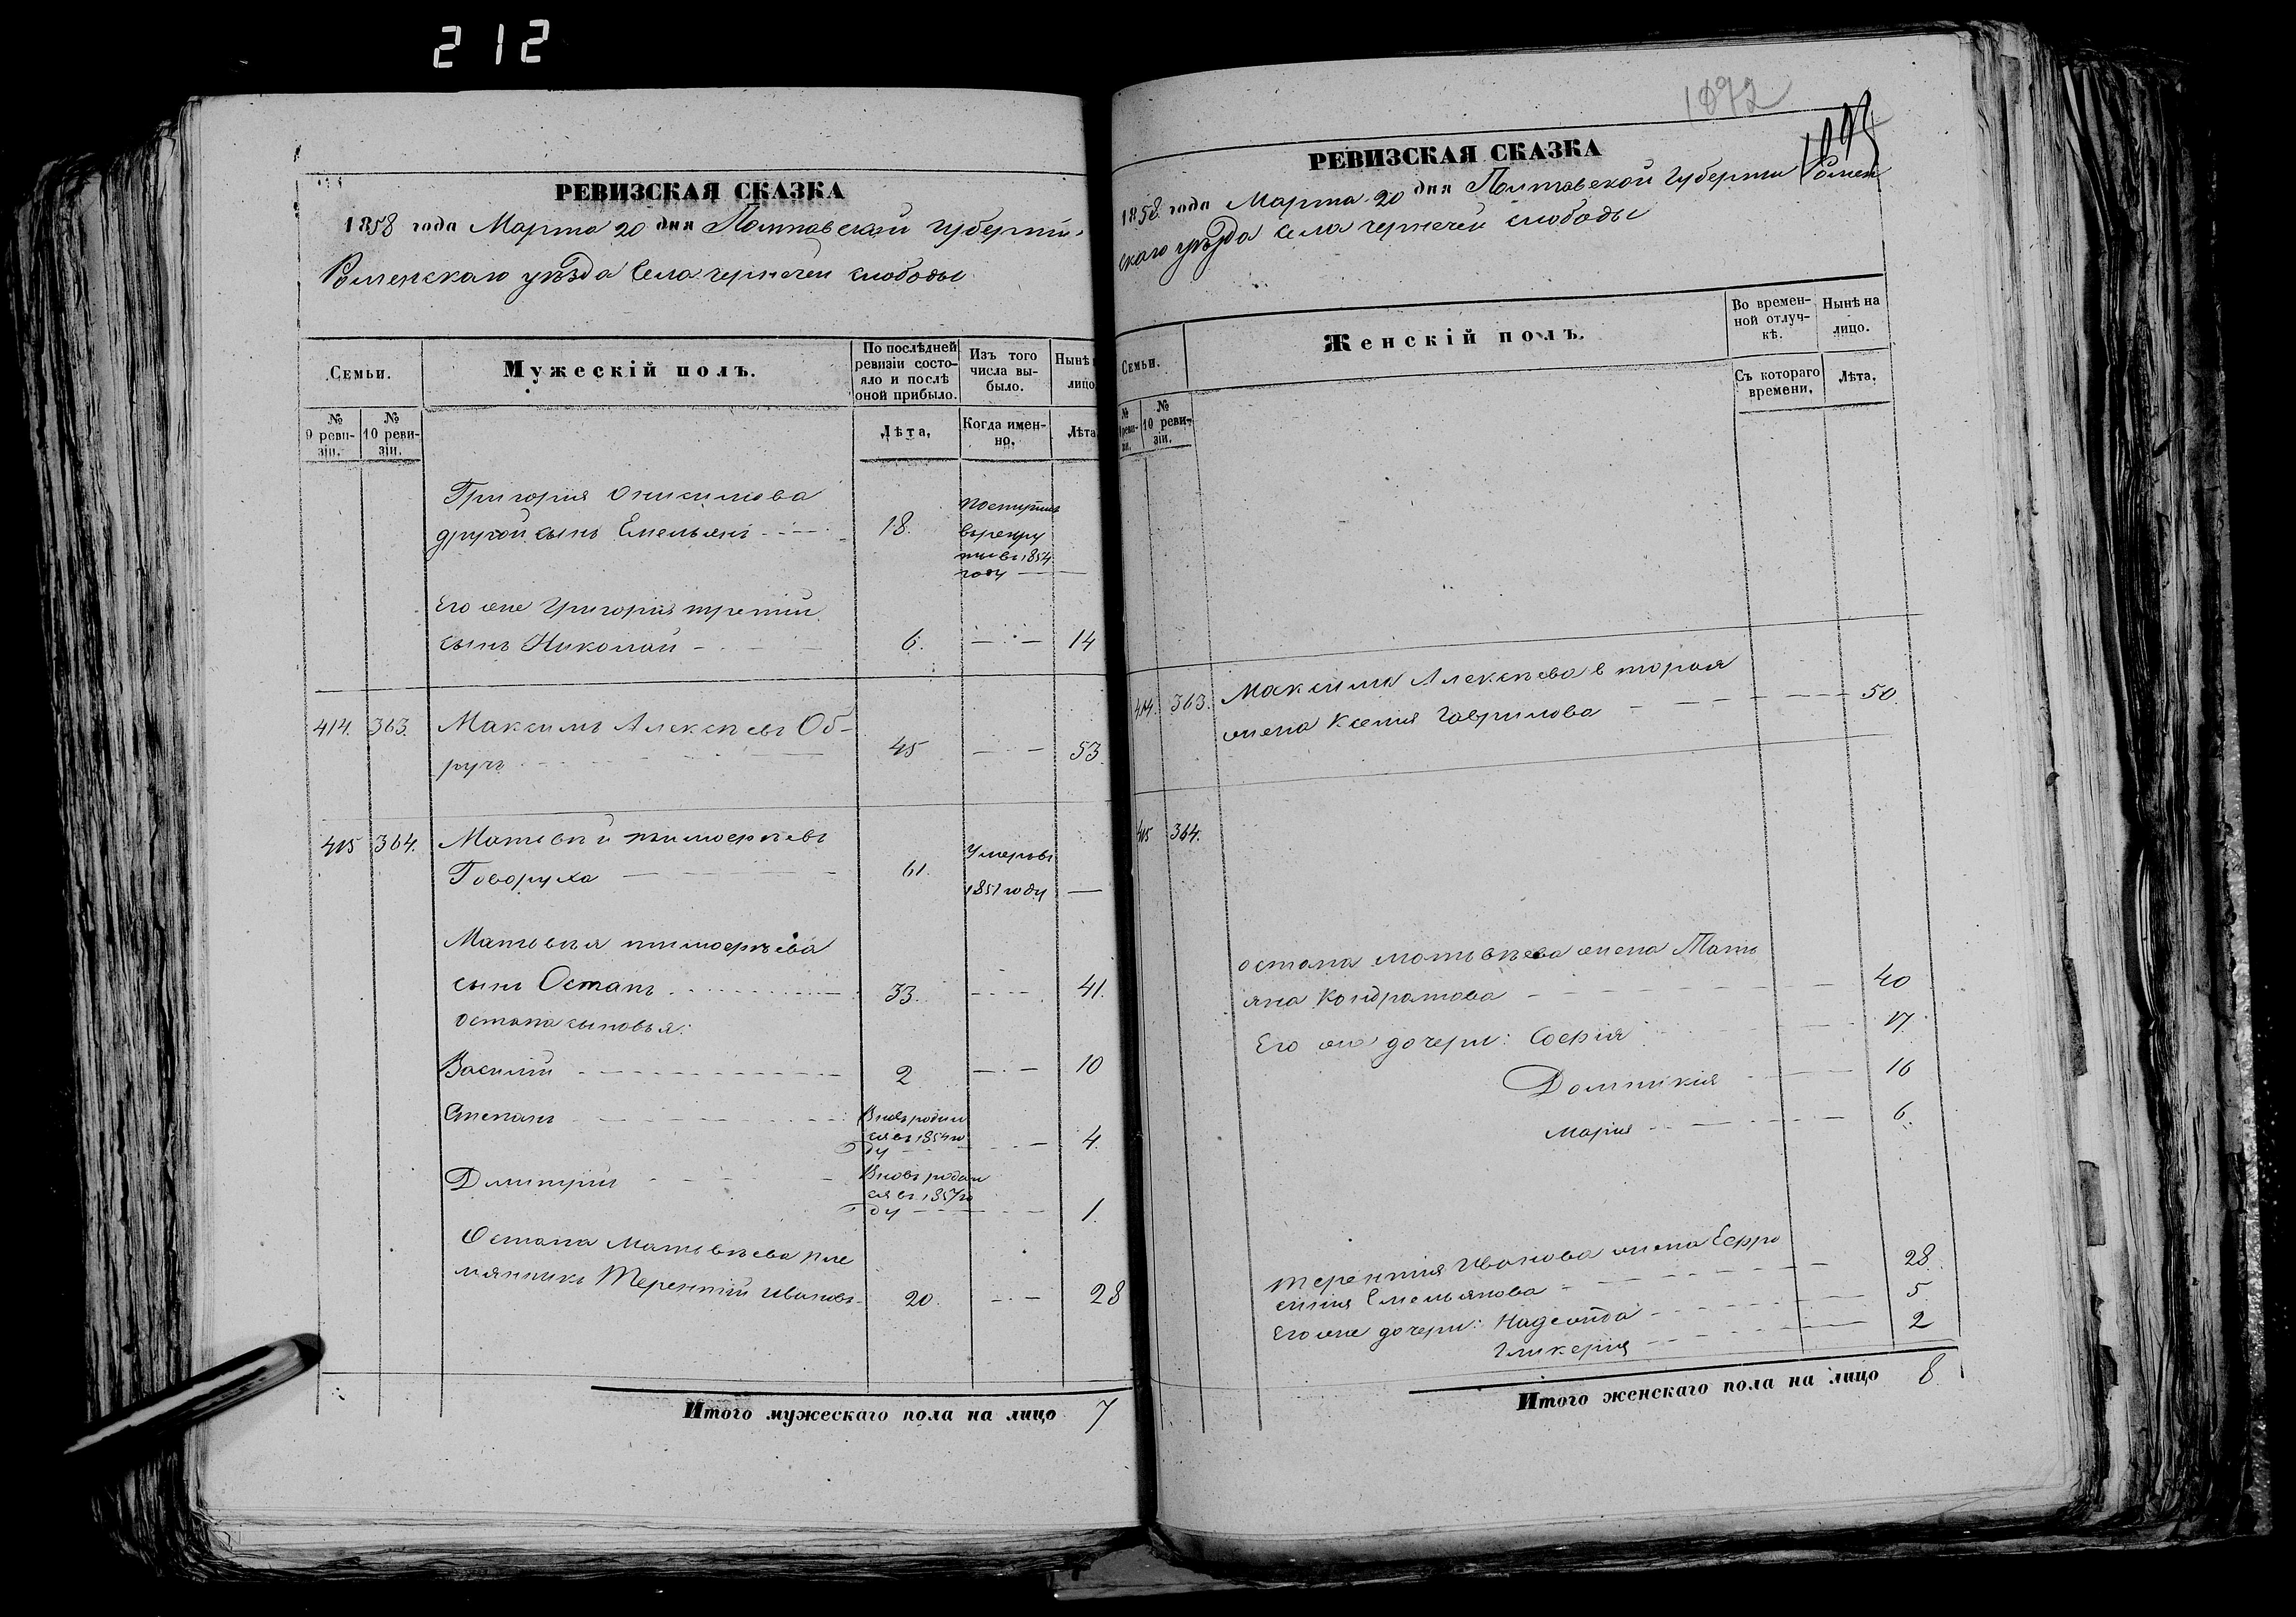 212
РЕВИЗСКАЯ СКАЗКА
1858 года Марта 20 дня Полтавской губерніи
Роменскаго уѣзда Села чернечей слободы
Семьи.
Мужескій полъ.
По послѣдней ревизіи состояло и послѣ оной прибыло.
Изъ того числа выбыло.
Нынѣ
лицо
№ 9 ревизіи.
№ 10 ревизіи.
Лѣта,
Когда именно.
Лѣта
Григорія Онисимова
другой сынъ Емельянъ 18. поступилъ
въ рекру
ты въ 1854
году
Его же Григорія третій
сынъ Николай 6. 14
414. 363. Максимъ Алексѣевъ Об-
ручъ 45 53.
415 364. Матвѣй тимофѣевъ
Говоруха 61. Умеръ въ
1851 году
Матвѣя тимофѣева
сынъ Остапъ 33. 41.
остапа сыновья:
Василій 2 10
Степанъ Вновь родил
ся въ 1854 го
ду 4.
Дмитрій Вновь родил
ся въ 1857 го
ду 1.
Остапа Матвѣева пле
мянникъ Терентій Ивановъ 20. 28
Итого мужескаго пола на лицо 7
1072
РЕВИЗСКАЯ СКАЗКА
1858 года Марта 20 дня Полтавской губерніи Ромен
скаго уѣзда села чернечей слободы
Семьи.
Женскій полъ.
Во временной отлучкѣ.
Нынѣ на лицо.
№ ревизіи.
№ 10 ревизіи.
Съ котораго времени.
Лѣта.
414. 363. Максима Алексѣева вторая
жена Ксенія Гаврилова 50.
415 364.
остапа матвѣева жена Тать
яна Кондратова 40
Его же дочери: Софія 17.
Домникія 16
Марія 6.
терентія Иванова жена Ефро
синія Емельянова 28.
Его же дочери: Надежда 5.
Гликерія 2
Итого женскаго пола на лицо 8.